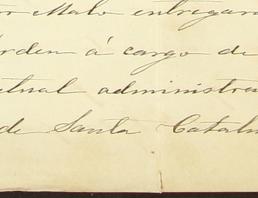 Malo entregar
orden á cargo de
tual administra
de Santa Catal